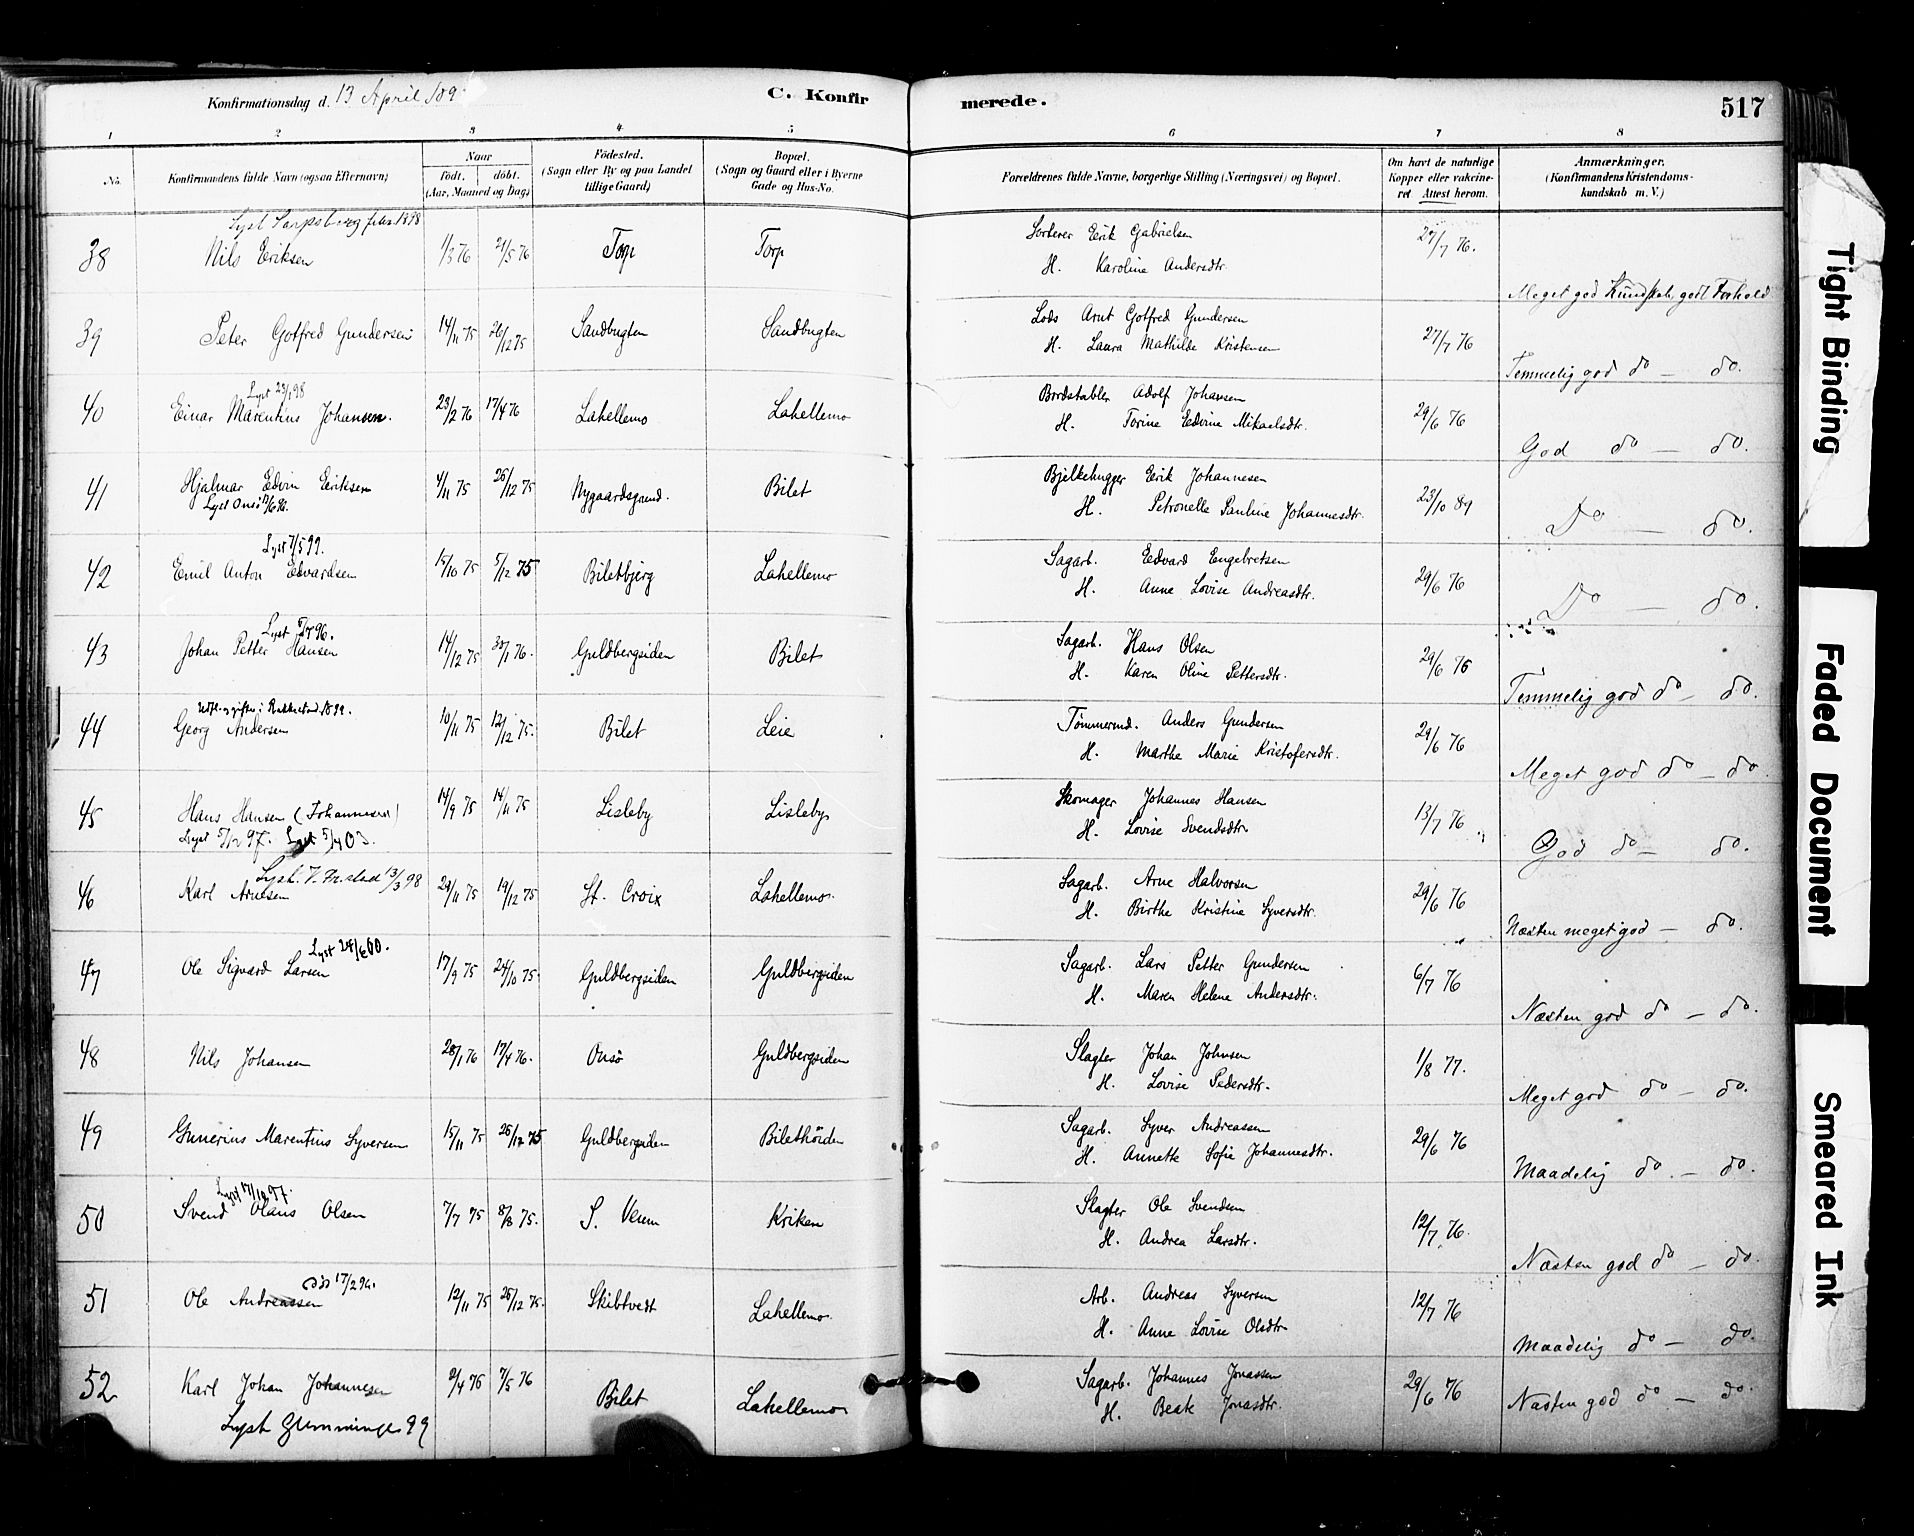 Konfirmationsdag d. 13 April 189
C. Konfirmerede.
517
1 2 3 4 5 6 7 8
No.
Konfirmandens fulde Navn (ogsaa Efternavn)
Naar
Født. døbt.
(Aar, Maaned og Dag)
Fødested.
(Sogn eller By og paa Landet tillige Gaard)
Bopæl.
(Sogn og Gaard eller i Byerne Gade og Hus-No.
Forældrenes fulde Navne, borgerlige Stilling (Næringsvei) og Bopæl.
Om havt de naturlige Kopper eller vakcineret Attest herom.
Anmærkninger.
(Konfirmandens Kristendomskundskab m. V.)
Lyst Sarpsborg febr. 1898
38 Nils Eriksen 1/3 76 21/5 76 Torp Torp Sorterer Erik Gabrielsen 27/7 76.
H. Karoline Andersdtr. Meget god Kundskab, godt Forhold
39 Peter Gotfred Gundersen 14/11 75 26/12 75 Sandbugten Sandbugten Lods Arnt Gotfred Gundersen 27/7 76
H. Laura Mathilde Kristensen Temmelig god do — do.
Lyst 23/1 98
40 Einar Marentius Johansen. 23/2 76 17/4 76 Lahellemo Lahellemo Bordstabler Adolf Johansen 29/6 76
H. Torine Edvine Mikaelsdtr. God do — do.
41 Hjalmar Edvin Eriksen 4/11 75 26/12 75 Nygaardsgrund. Bilet Bjelkehugger Erik Johannesen 23/10 89
Lyst Onsø H. Petronelle Pauline Johannesdtr. Do — do.
Lyst 7/5 99.
42 Emil Anton Edvardsen 15/10 75 5/12 75 Biletbjerg Lahellemo Sagarb. Edvard Engebretsen 29/6 76
H. Anne Lovise Andreasdtr. Do — do.
Lyst 96.
43 Johan Petter Hansen 14/12 75 30/1 76. Guldbergsiden Bilet Sagarb. Hans Olsen 29/6 76
H. Karen Oline Pettersdtr. Temmelig god do — do.
i Rakkestad 1899.
44 Georg Andersen 10/11 75 12/12 75. Bilet Leie Tømmermd. Anders Gundersen 29/6 76
H. Marthe Marie Kristofersdtr. Meget god do — do.
45 Hans Hansen (Johannesen) 14/9 75 14/11 75 Lisleby Lisleby Skomager Johannes Hansen 13/7 76
Lyst 5/12 97. Lyst 5/4 03. H. Lovise Svendsdtr. God do — do.
Lyst. V. Fr.stad 13/3 98
46 Karl Arnesen 29/11 75 19/12 75 St. Croix Lahellemo. Sagarb. Arne Halvorsen 29/6 76
H. Birthe Kristine Syversdtr. Næsten meget god — do.
Lyst 24/6 00.
47 Ole Sigvard Larsen 17/9 75 24/10 75. Guldbergsiden Guldbergsiden Sagarb. Lars Petter Gundersen 6/7 76
H. Maren Helene Andersdtr. Næsten god do — do.
48 Nils Johansen 28/1 76 17/4 76. Onsø Guldbergsiden Slagter Johan Johnsen 1/8 77.
H. Lovise Pedersdtr. Meget god do — do.
49 Gunerius Marentius Syversen 15/11 75 26/12 75 Guldbergsiden Bilethöiden Sagarb. Syver Andreassen 29/6 76
H. Annette Sofie Johannesdtr. Maadelig do. — do.
Lyst 17/10 97.
50 Svend Olaus Olsen 7/7 75 8/8 75. S. Venn Kriken Slagter Ole Svendsen 12/7 76.
H. Andrea Larsdtr. Næsten god do — do.
død 17/2 94.
51 Ole Andreassen 12/11 75 26/12 75. Skibtvedt Lahellemo. Arb. Andreas Syversen 12/7 76
H. Anne Lovise Olsdtr Maadelig do — do.
52 Karl Johan Johannesen 2/4 76 7/5 76 Bilet Lahellemo Sagarb. Johannes Jonassen 29/6 76
Lyst Glemminge 99 H. Beate Jonasdtr. Næsten god do — do.
Tight Binding
Faded Document
Smeared Ink